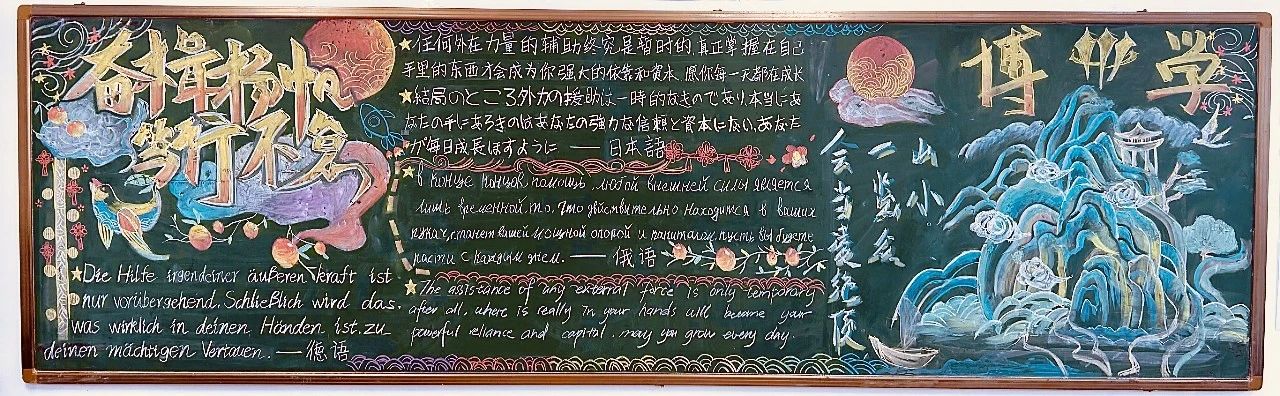 奋楫扬帆
笃行不怠
Die Hilfe irgendeiner äußeren Kraft ist
nur vorübergehend. Schließlich wird das.
was wirklich in deinen Händen ist. zu
deinen mächtigen Vertauen. —德语
任何外在力量的辅助终究是暂时的,真正掌握在自己
手里的东西才会成为你强大的依靠和资本,愿你每一天都在成长
結局のところ外力の援助は一時的なものであり,本当にあ
なたの手にあるきのはあなたの強力な信頼と資本にない,あなた
が毎日成長ほすように —日本語
в конце концов помощь любой внешней силы является
лишь временной то, что действительно находится в ваших
руках, станет вашей мощной опорой и капиталом, пусть вы будете
расти с каждым днем. —俄语
The assistance of any external force is only temporary
after all, where is really in your hands will become your
powerful reliance and capital. may you grow every day.
会当凌绝顶
一览众
山小
博 学